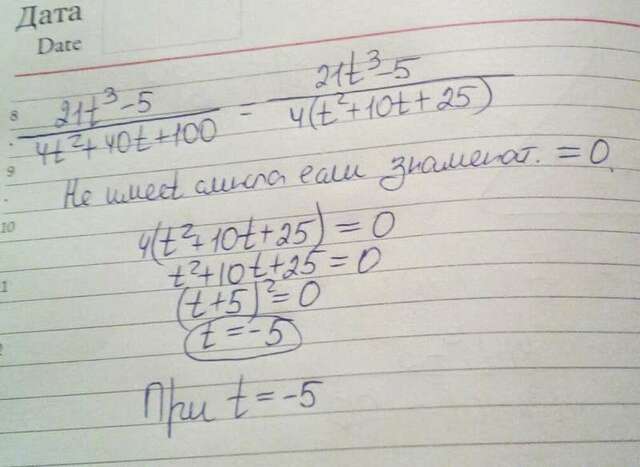 Дата
Date
8
9
10
(21t³-5)/(4t²+40t+100) = (21t³-5)/(4(t²+10t+25))
Не имеет смысла если знаменат. = 0.
4(t²+10t+25) = 0
t²+10t+25=0
(t+5)²=0
t=-5
При t=-5